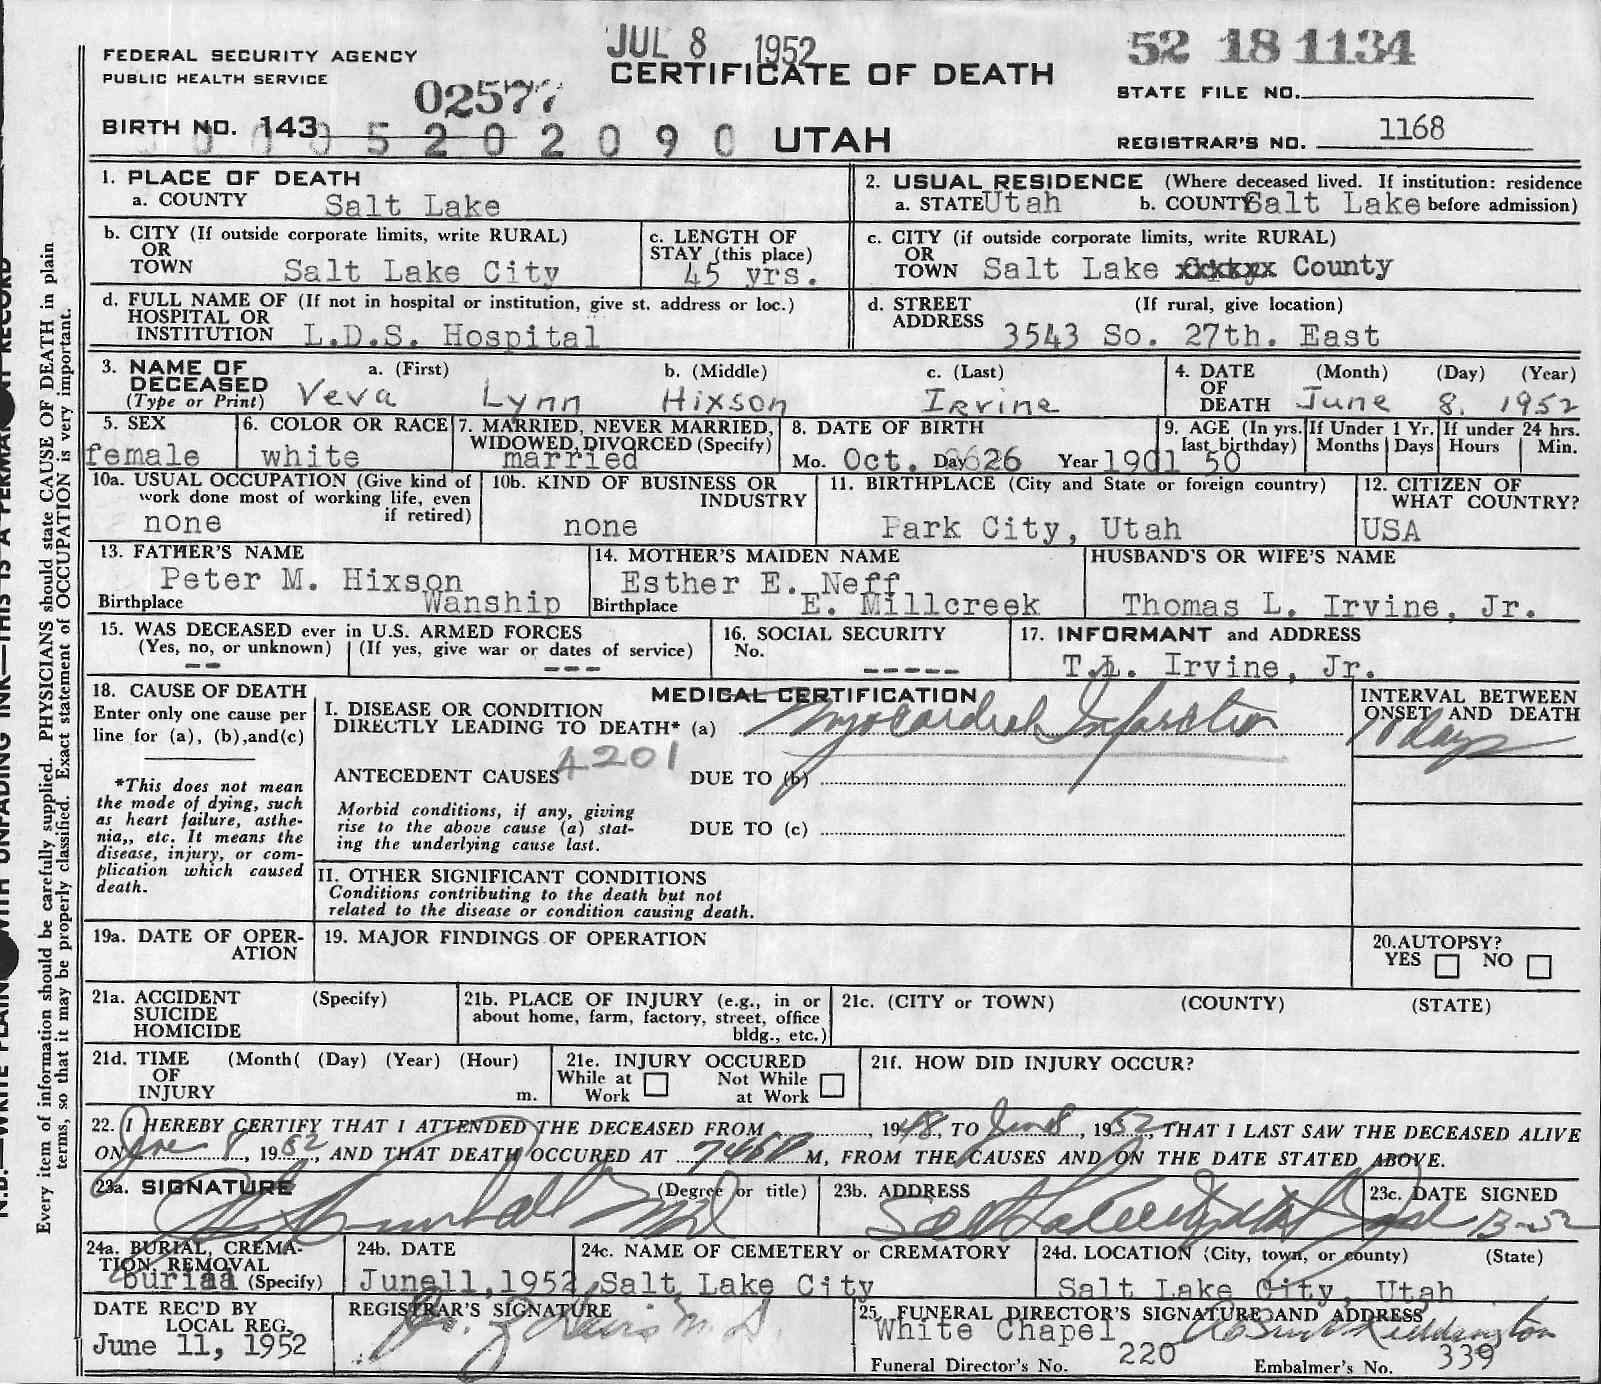 JUL 8 1952
52 18 1134
FEDERAL SECURITY AGENCY
PUBLIC HEALTH SERVICE
CERTIFICATE OF DEATH
STATE FILE NO.
02577
BIRTH NO. 143
0 0 0 5 2 0 2 0 9 0
UTAH
REGISTRAR'S NO. 1168
1. PLACE OF DEATH
a. COUNTY Salt Lake
2. USUAL RESIDENCE (Where deceased lived. If institution: residence
a. STATE Utah b. COUNTY Salt Lake before admission)
b. CITY (If outside corporate limits, write RURAL)
OR
TOWN Salt Lake City
c. LENGTH OF
STAY (this place)
45 yrs.
c. CITY (if outside corporate limits, write RURAL)
OR
TOWN Salt Lake County
d. FULL NAME OF (If not in hospital or institution, give st. address or loc.)
HOSPITAL OR
INSTITUTION L.D.S. Hospital
d. STREET (If rural, give location)
ADDRESS 3543 So. 27th. East
3. NAME OF a. (First) b. (Middle) c. (Last)
DECEASED
(Type or Print) Veva Lynn Hixson Irvine
4. DATE (Month) (Day) (Year)
OF
DEATH June 8. 1952
5. SEX
female
6. COLOR OR RACE
white
7. MARRIED, NEVER MARRIED,
WIDOWED, DIVORCED (Specify)
married
8. DATE OF BIRTH
Mo. Oct. Day 26 Year 1901
9. AGE (In yrs.
last birthday)
50
If Under 1 Yr.
Months Days
If under 24 hrs.
Hours Min.
10a. USUAL OCCUPATION (Give kind of
work done most of working life, even
if retired)
none
10b. KIND OF BUSINESS OR
INDUSTRY
none
11. BIRTHPLACE (City and State or foreign country)
Park City, Utah
12. CITIZEN OF
WHAT COUNTRY?
USA
13. FATHER'S NAME
Peter M. Hixson
Birthplace Wanship
14. MOTHER'S MAIDEN NAME
Esther E. Neff
Birthplace E. Millcreek
HUSBAND'S OR WIFE'S NAME
Thomas L. Irvine, Jr.
15. WAS DECEASED ever in U.S. ARMED FORCES
(Yes, no, or unknown) (If yes, give war or dates of service)
-- ---
16. SOCIAL SECURITY
No.
-----
17. INFORMANT and ADDRESS
T.L. Irvine, Jr.
18. CAUSE OF DEATH
Enter only one cause per
line for (a), (b), and (c)
*This does not mean
the mode of dying, such
as heart failure, asthe-
nia,, etc. It means the
disease, injury, or com-
plication which caused
death.
MEDICAL CERTIFICATION
I. DISEASE OR CONDITION
DIRECTLY LEADING TO DEATH* (a) Myocardial Infarction
INTERVAL BETWEEN
ONSET AND DEATH
10 days
4201
ANTECEDENT CAUSES DUE TO (b)
Morbid conditions, if any, giving
rise to the above cause (a) stat-
ing the underlying cause last.
DUE TO (c)
II. OTHER SIGNIFICANT CONDITIONS
Conditions contributing to the death but not
related to the disease or condition causing death.
19a. DATE OF OPER-
ATION
19. MAJOR FINDINGS OF OPERATION
20. AUTOPSY?
YES NO
21a. ACCIDENT (Specify)
SUICIDE
HOMICIDE
21b. PLACE OF INJURY (e.g., in or
about home, farm, factory, street, office
bldg., etc.)
21c. (CITY or TOWN) (COUNTY) (STATE)
21d. TIME (Month( (Day) (Year) (Hour)
OF
INJURY m.
21e. INJURY OCCURED
While at Work Not While at Work
21f. HOW DID INJURY OCCUR?
22. I HEREBY CERTIFY THAT I ATTENDED THE DECEASED FROM 1948, TO June 8, 1952, THAT I LAST SAW THE DECEASED ALIVE
ON June 8, 1952, AND THAT DEATH OCCURED AT M, FROM THE CAUSES AND ON THE DATE STATED ABOVE.
23a. SIGNATURE (Degree or title)
MD
23b. ADDRESS
Salt Lake City
23c. DATE SIGNED
24a. BURIAL, CREMA-
TION, REMOVAL
(Specify)
burial
24b. DATE
June 11, 1952
24c. NAME OF CEMETERY or CREMATORY
Salt Lake City
24d. LOCATION (City, town, or county) (State)
Salt Lake City, Utah
DATE REC'D BY
LOCAL REG.
June 11, 1952
REGISTRAR'S SIGNATURE
M.D.
25. FUNERAL DIRECTOR'S SIGNATURE AND ADDRESS
White Chapel
Funeral Director's No. 220 Embalmer's No. 339
Every item of information should be carefully supplied. PHYSICIANS should state CAUSE OF DEATH in plain
terms, so that it may be properly classified. Exact statement of OCCUPATION is very important.